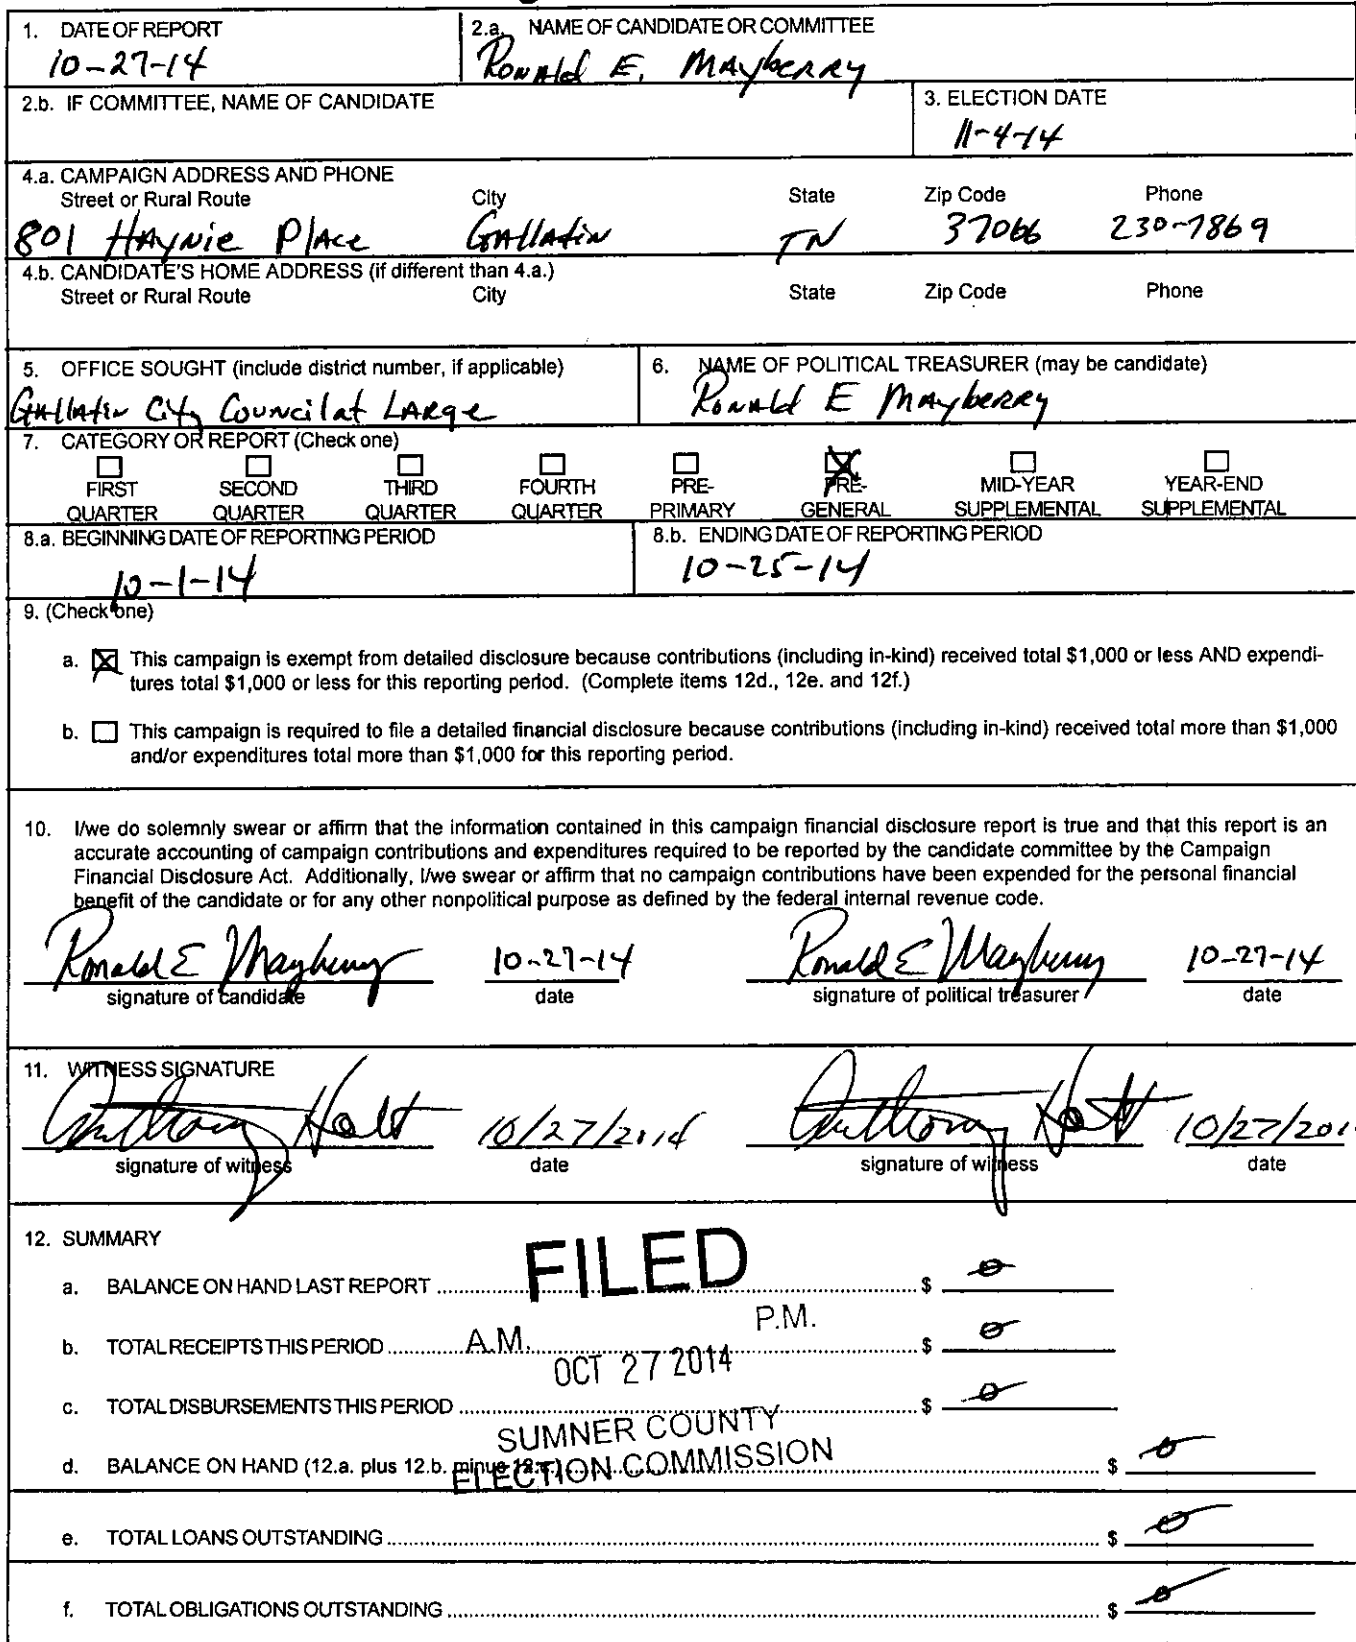 1. DATE OF REPORT
10-27-14
2.a. NAME OF CANDIDATE OR COMMITTEE
Ronald E. Mayberry
2.b. IF COMMITTEE, NAME OF CANDIDATE
3. ELECTION DATE
11-4-14
4.a. CAMPAIGN ADDRESS AND PHONE
Street or Rural Route City State Zip Code Phone
801 Haynie Place Gallatin TN 37066 230-7869
4.b. CANDIDATE'S HOME ADDRESS (if different than 4.a.)
Street or Rural Route City State Zip Code Phone
5. OFFICE SOUGHT (include district number, if applicable)
Gallatin City Council at Large
6. NAME OF POLITICAL TREASURER (may be candidate)
Ronald E Mayberry
7. CATEGORY OR REPORT (Check one)
FIRST QUARTER
SECOND QUARTER
THIRD QUARTER
FOURTH QUARTER
PRE-PRIMARY
PRE-GENERAL
MID-YEAR SUPPLEMENTAL
YEAR-END SUPPLEMENTAL
8.a. BEGINNING DATE OF REPORTING PERIOD
10-1-14
8.b. ENDING DATE OF REPORTING PERIOD
10-25-14
9. (Check one)
a. This campaign is exempt from detailed disclosure because contributions (including in-kind) received total $1,000 or less AND expendi-
tures total $1,000 or less for this reporting period. (Complete items 12d., 12e. and 12f.)
b. This campaign is required to file a detailed financial disclosure because contributions (including in-kind) received total more than $1,000
and/or expenditures total more than $1,000 for this reporting period.
10. I/we do solemnly swear or affirm that the information contained in this campaign financial disclosure report is true and that this report is an
accurate accounting of campaign contributions and expenditures required to be reported by the candidate committee by the Campaign
Financial Disclosure Act. Additionally, I/we swear or affirm that no campaign contributions have been expended for the personal financial
benefit of the candidate or for any other nonpolitical purpose as defined by the federal internal revenue code.
Ronald E Mayberry 10-27-14 Ronald E Mayberry 10-27-14
signature of candidate date signature of political treasurer date
11. WITNESS SIGNATURE
Anthony Holt 10/27/2014 Anthony Holt 10/27/201
signature of witness date signature of witness date
12. SUMMARY
FILED
a. BALANCE ON HAND LAST REPORT $ 0
A.M. P.M.
b. TOTAL RECEIPTS THIS PERIOD $ 0
OCT 27 2014
c. TOTAL DISBURSEMENTS THIS PERIOD $ 0
SUMNER COUNTY
ELECTION COMMISSION
d. BALANCE ON HAND (12.a. plus 12.b. minus 12.c.) $ 0
e. TOTAL LOANS OUTSTANDING $ 0
f. TOTAL OBLIGATIONS OUTSTANDING $ 0